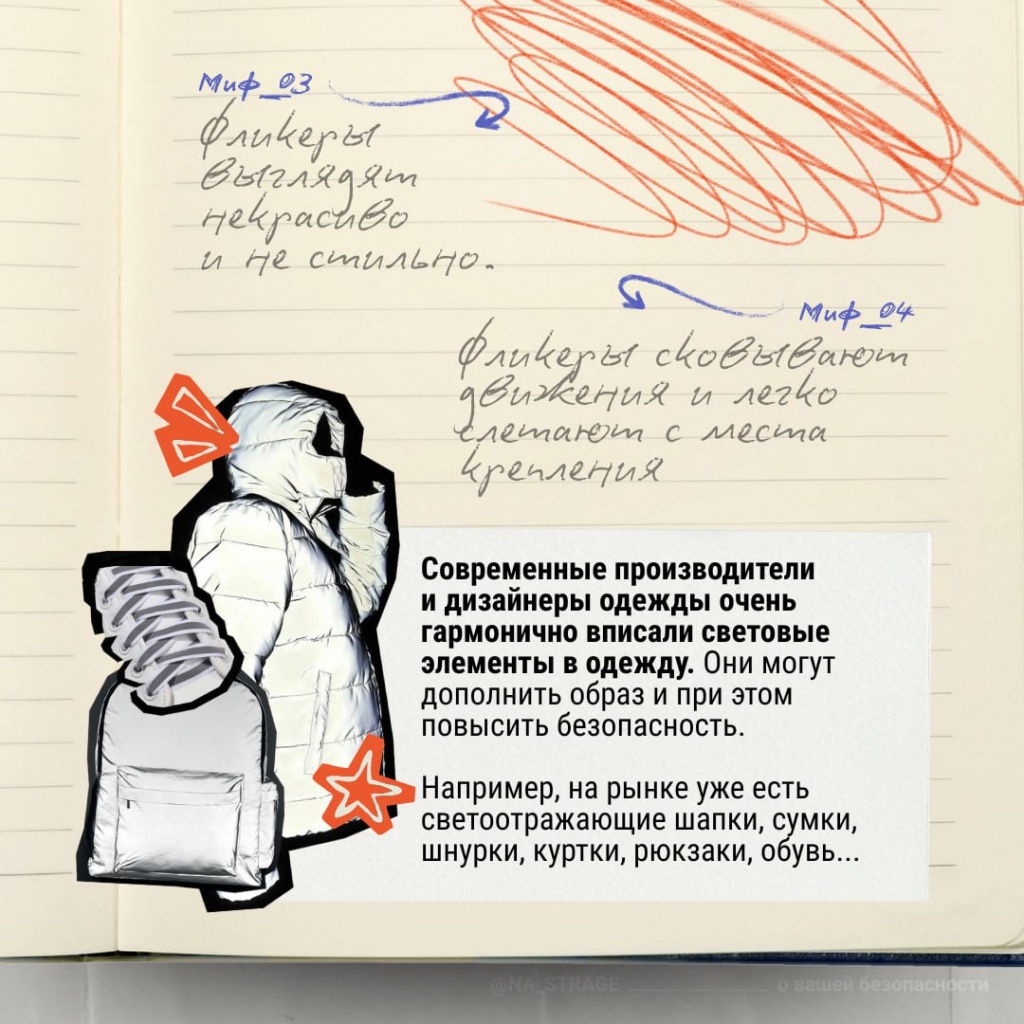 Миф_03
Фликеры
выглядят
некрасиво
и не стильно.
Миф_04
Фликеры сковывают
движения и легко
слетают с места
крепления
Современные производители
и дизайнеры одежды очень
гармонично вписали световые
элементы в одежду. Они могут
дополнить образ и при этом
повысить безопасность.
Например, на рынке уже есть
светоотражающие шапки, сумки,
шнурки, куртки, рюкзаки, обувь...
@NA_STRAGE о вашей безопасности